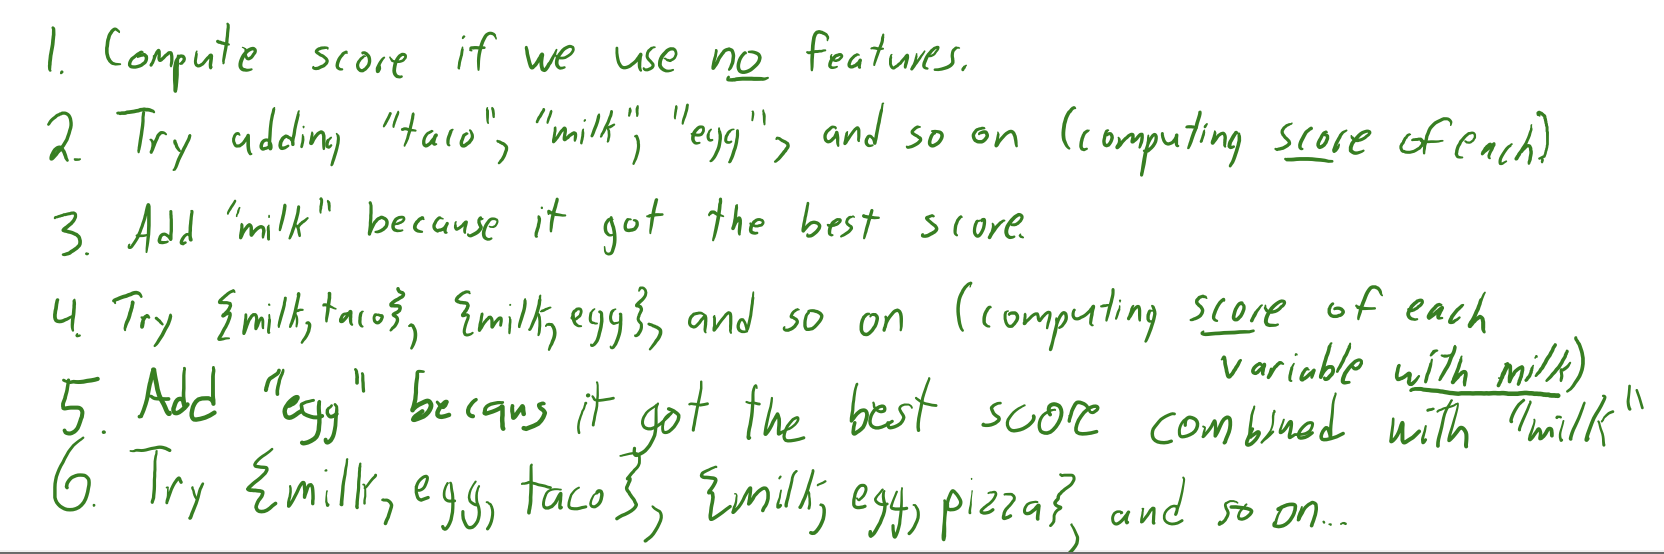 1. Compute score if we use no features.
2. Try adding "taco", "milk", "egg", and so on (computing score of each)
3. Add "milk" because it got the best score.
4. Try {milk, taco}, {milk, egg}, and so on (computing score of each
variable with milk)
5. Add "egg" becaus it got the best score combined with "milk"
6. Try {milk, egg, taco}, {milk, egg, pizza}, and so on...